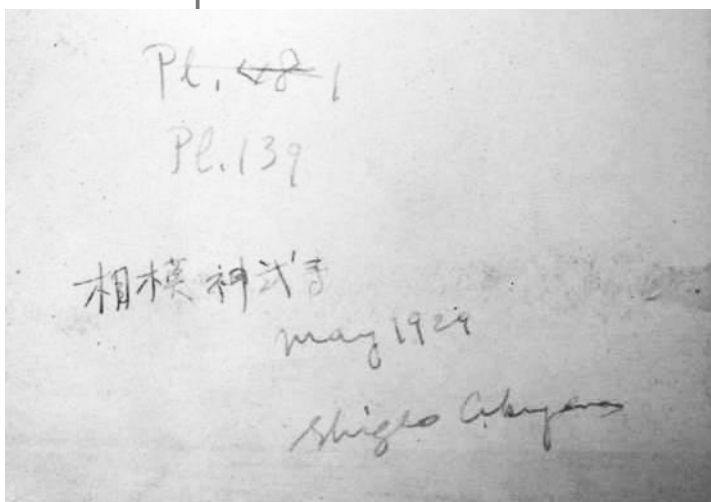 Pl. 1
Pl. 139
相模 神武寺
may 1929
Shigeo Akiyama